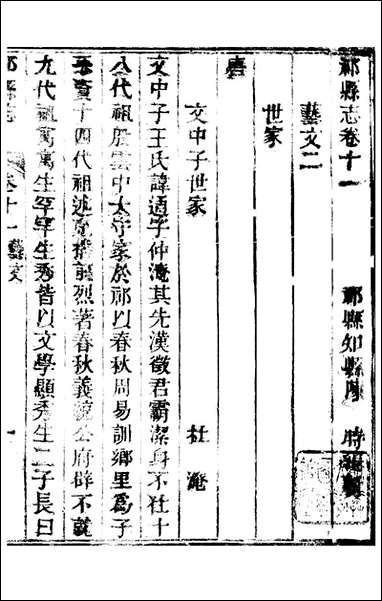 祁縣志卷十一　祁縣知縣陳　時
藝文二
世家
唐
文中子世家　杜　淹
文中子王氏諱通字仲淹其先漢徵君霸潔身不仕十
八代祖殷雲中太守家於祁以春秋周易訓鄉里爲子
孫資十四代祖述克播前烈著春秋義統公府辟不就
九代祖寓寓生罕罕生秀皆以文學顯秀生二子長曰
祁縣志　卷十一藝文　一